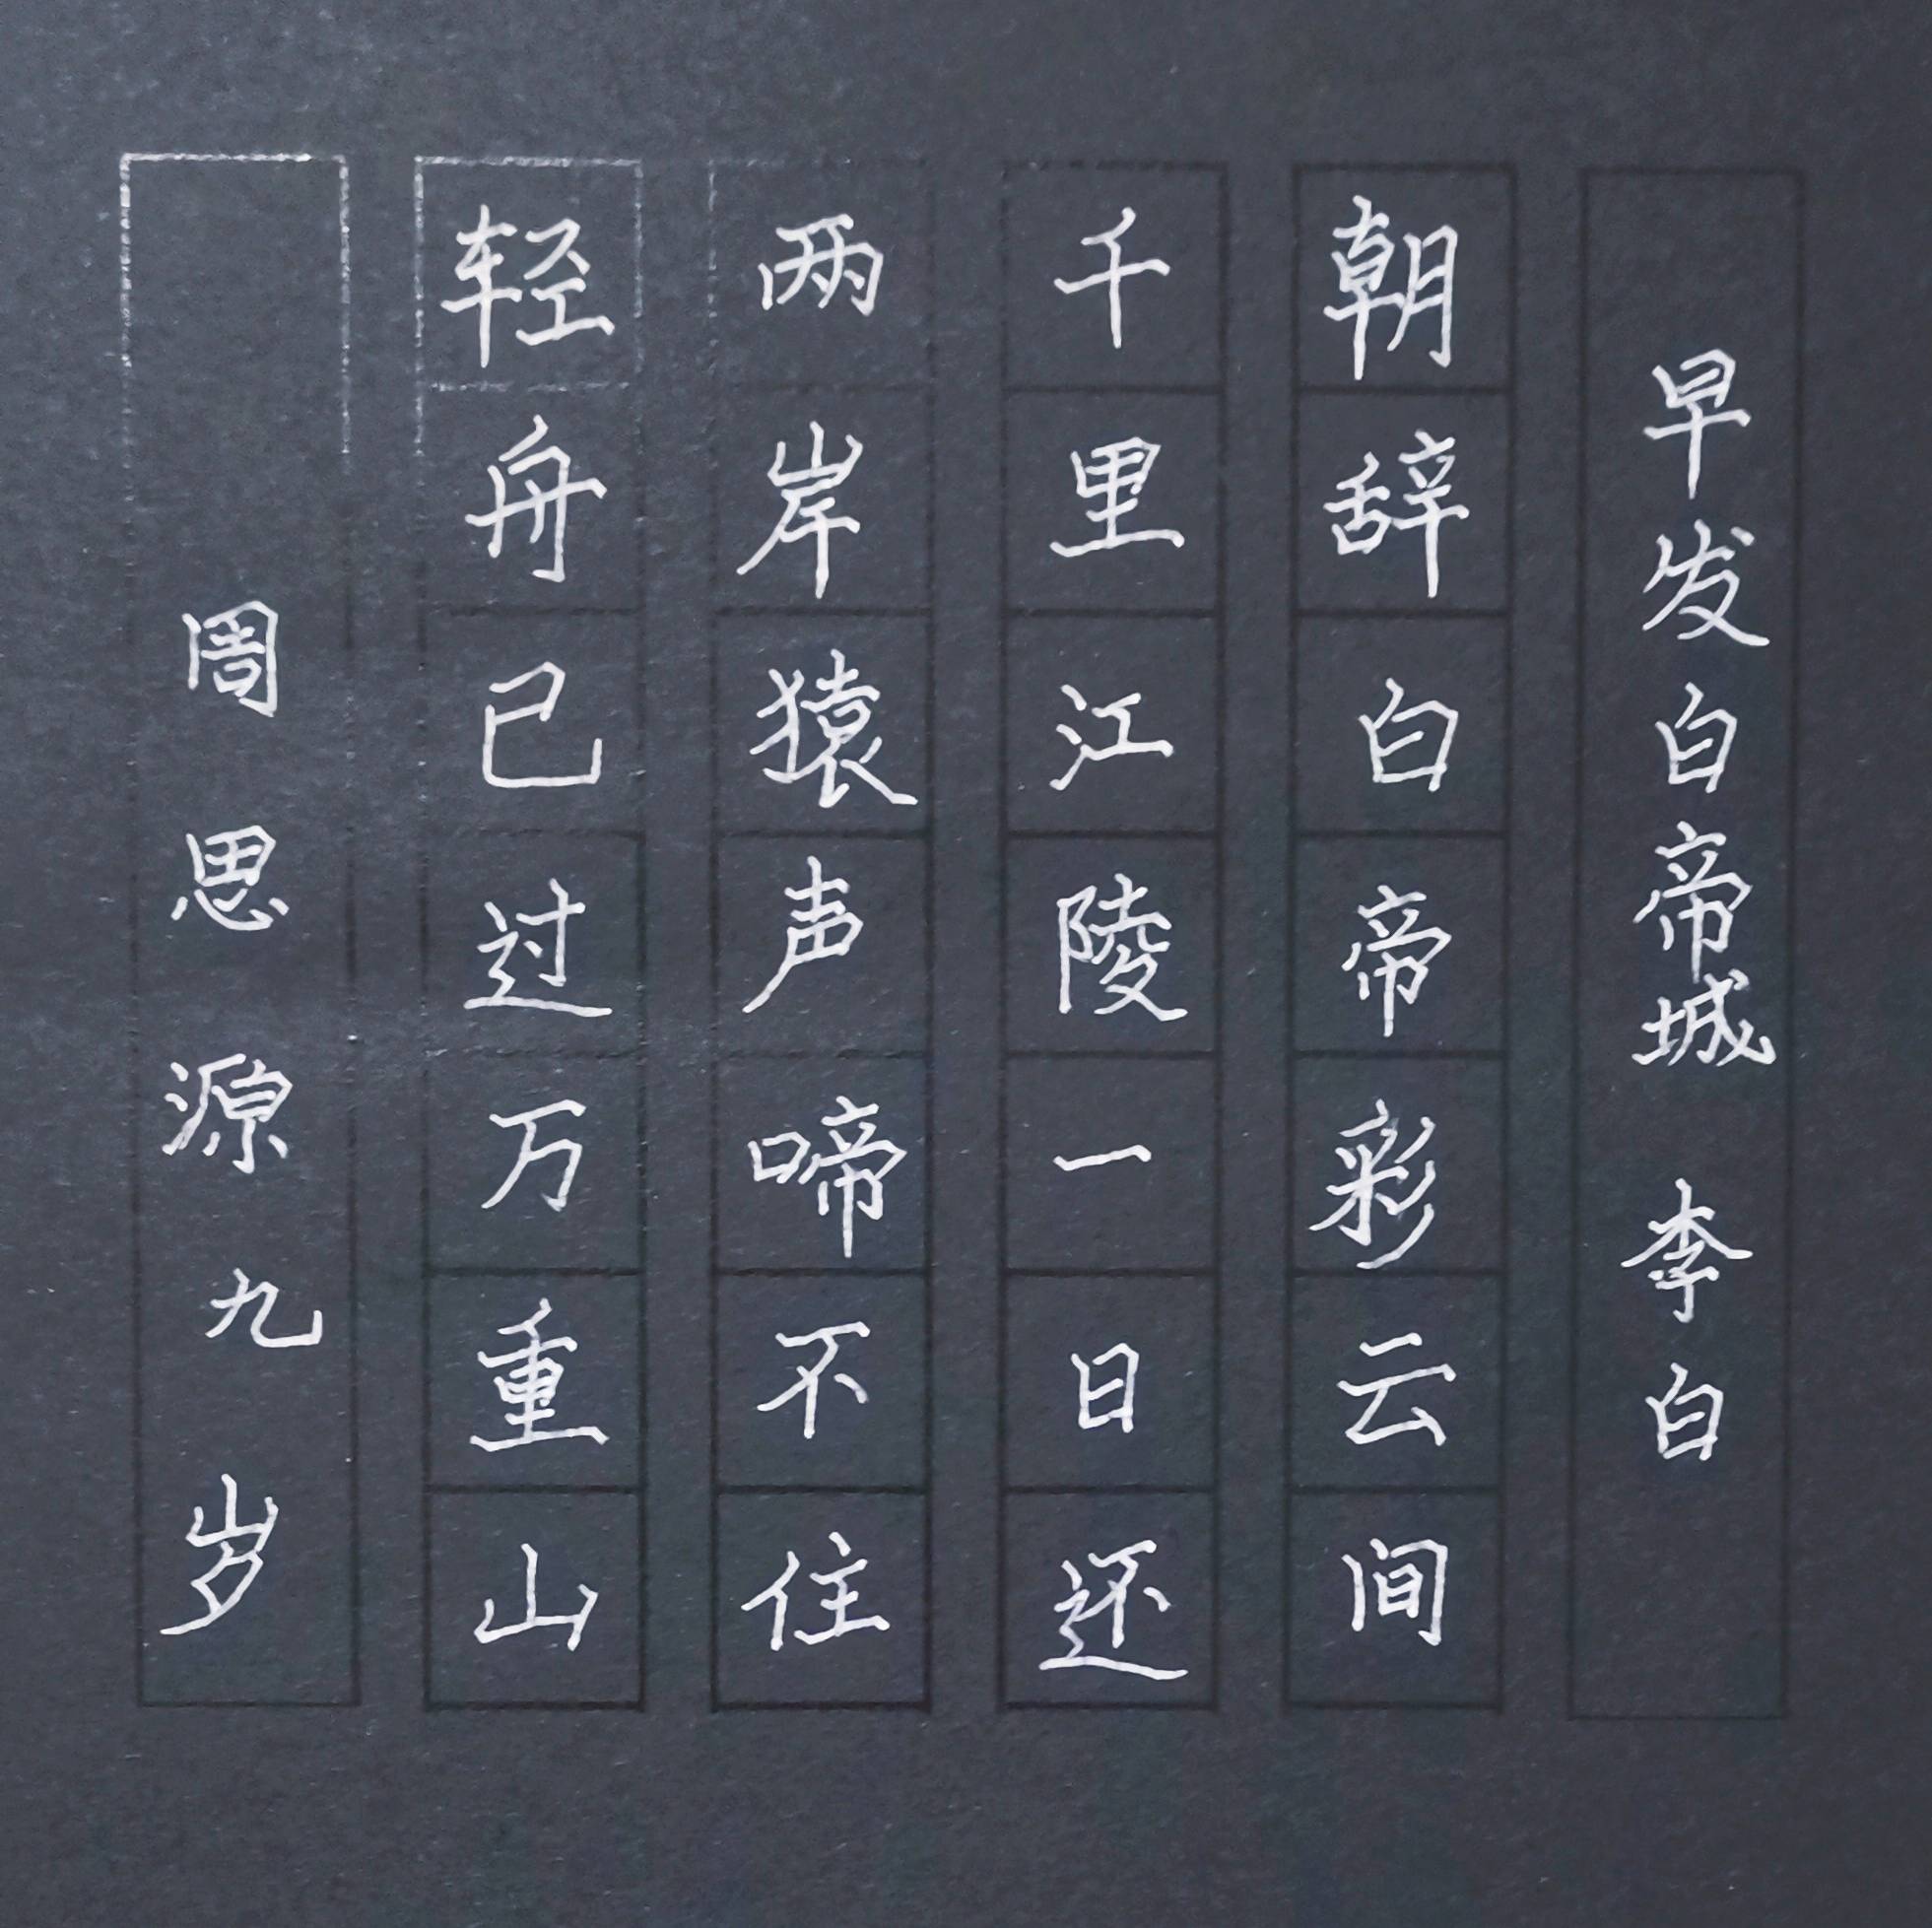 早发白帝城 李白
朝辞白帝彩云间
千里江陵一日还
两岸猿声啼不住
轻舟已过万重山
周思源九岁